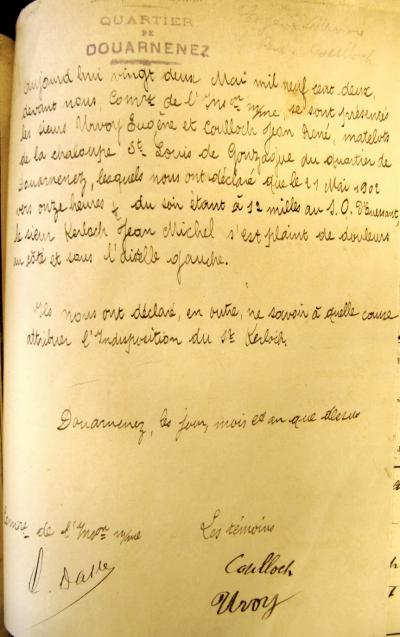 QUARTIER
DE
DOUARNENEZ
aujourd hui vingt deux Mai mil neuf cent deux,
devant nous, Comre de l'Inson mme, se sont présentés
les sieurs Urvoy Eugène et Coulloch Jean René, matelots
de la chaloupe St Louis de Gonzague du quartier de
Douarnenez, lesquels nous ont déclaré que le 21 Mai 1902
vers onze heures ½ du soir étant à 12 milles au S. O. d'Ouessant,
le sieur Kerloch Jean Michel s'est plaint de douleurs
au côté et sous l'aiselle gauche.
Ils nous ont déclaré, en outre, ne savoir à quelle cause
attribuer l'Indisposition du Sr Kerloch.
Douarnenez, les jour, mois et an que dessus
de l'Inson mme
Les témoins
Coulloch
Urvoy